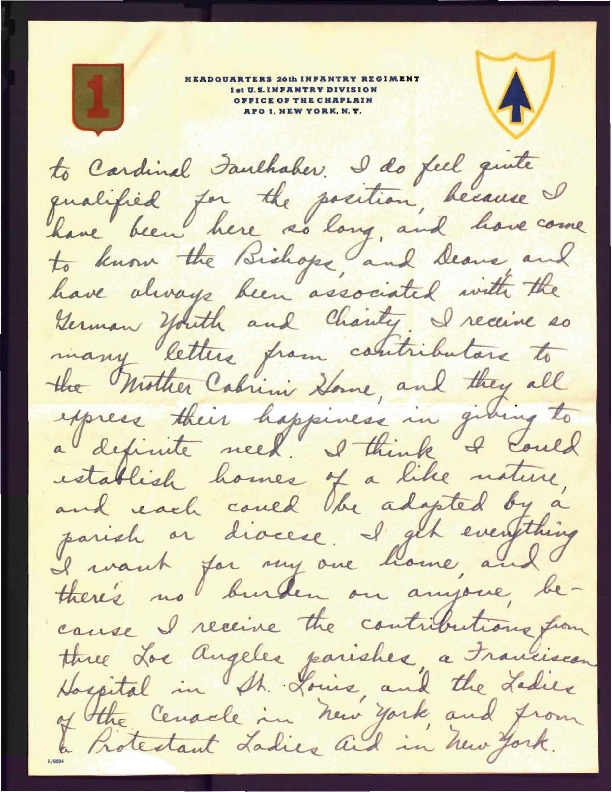 1
HEADQUARTERS 26th INFANTRY REGIMENT
1st U.S. INFANTRY DIVISION
OFFICE OF THE CHAPLAIN
APO 1, NEW YORK, N.Y.
to Cardinal Faulhaber. I do feel quite
qualified for the position, because I
have been here so long, and have come
to know the Bishops, and Deans, and
have always been associated with the
German Youth and Charity. I receive so
many letters from contributors to
the Mother Cabrini Home, and they all
express their happiness in giving to
a definite need. I think I could
establish homes of a like nature,
and each could be adapted by a
parish or diocese. I get everything
I want for my one home, and
there's no burden on anyone, be-
cause I receive the contributions from
three Los Angeles parishes, a Franciscan
Hospital in St. Louis, and the Ladies
of the Cenacle in New York, and from
a Protestant Ladies Aid in New York.